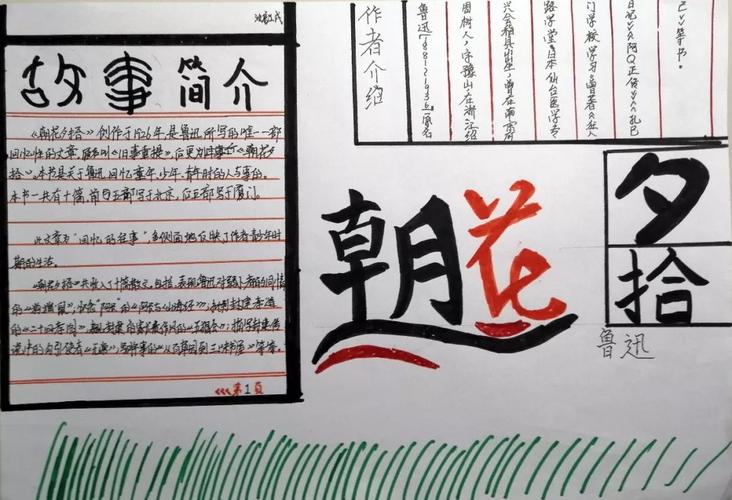 故事简介
《朝花夕拾》创作于1926年是鲁迅所写的唯一一部
回忆性的文章,原名叫《旧事重提》,后更为《朝花夕
拾》,本书是关于鲁迅回忆童年,少年,青年时的人与事的。
本书一共有十篇,前五部写于北京,后五部写于厦门。
此文章为“回忆的往事”,多侧面地反映了作者青少年时
期的生活。
《朝花夕拾》共收入了十篇散文,包括:表现鲁迅对弱小者的同情
的
的《二十四孝图》
《五猖会》
《无常》
《百草园到三味书屋》等等。
<<<第1页
作者介绍
鲁迅(1881~1936)原名
周树人,字豫山在浙江绍
兴会稽县出生,曾在南京
路学堂,日本仙台医学专
门学校学习,曾著《狂人
日记》《阿Q正传》《孔乙
己》等书。
朝花
夕
拾
鲁迅